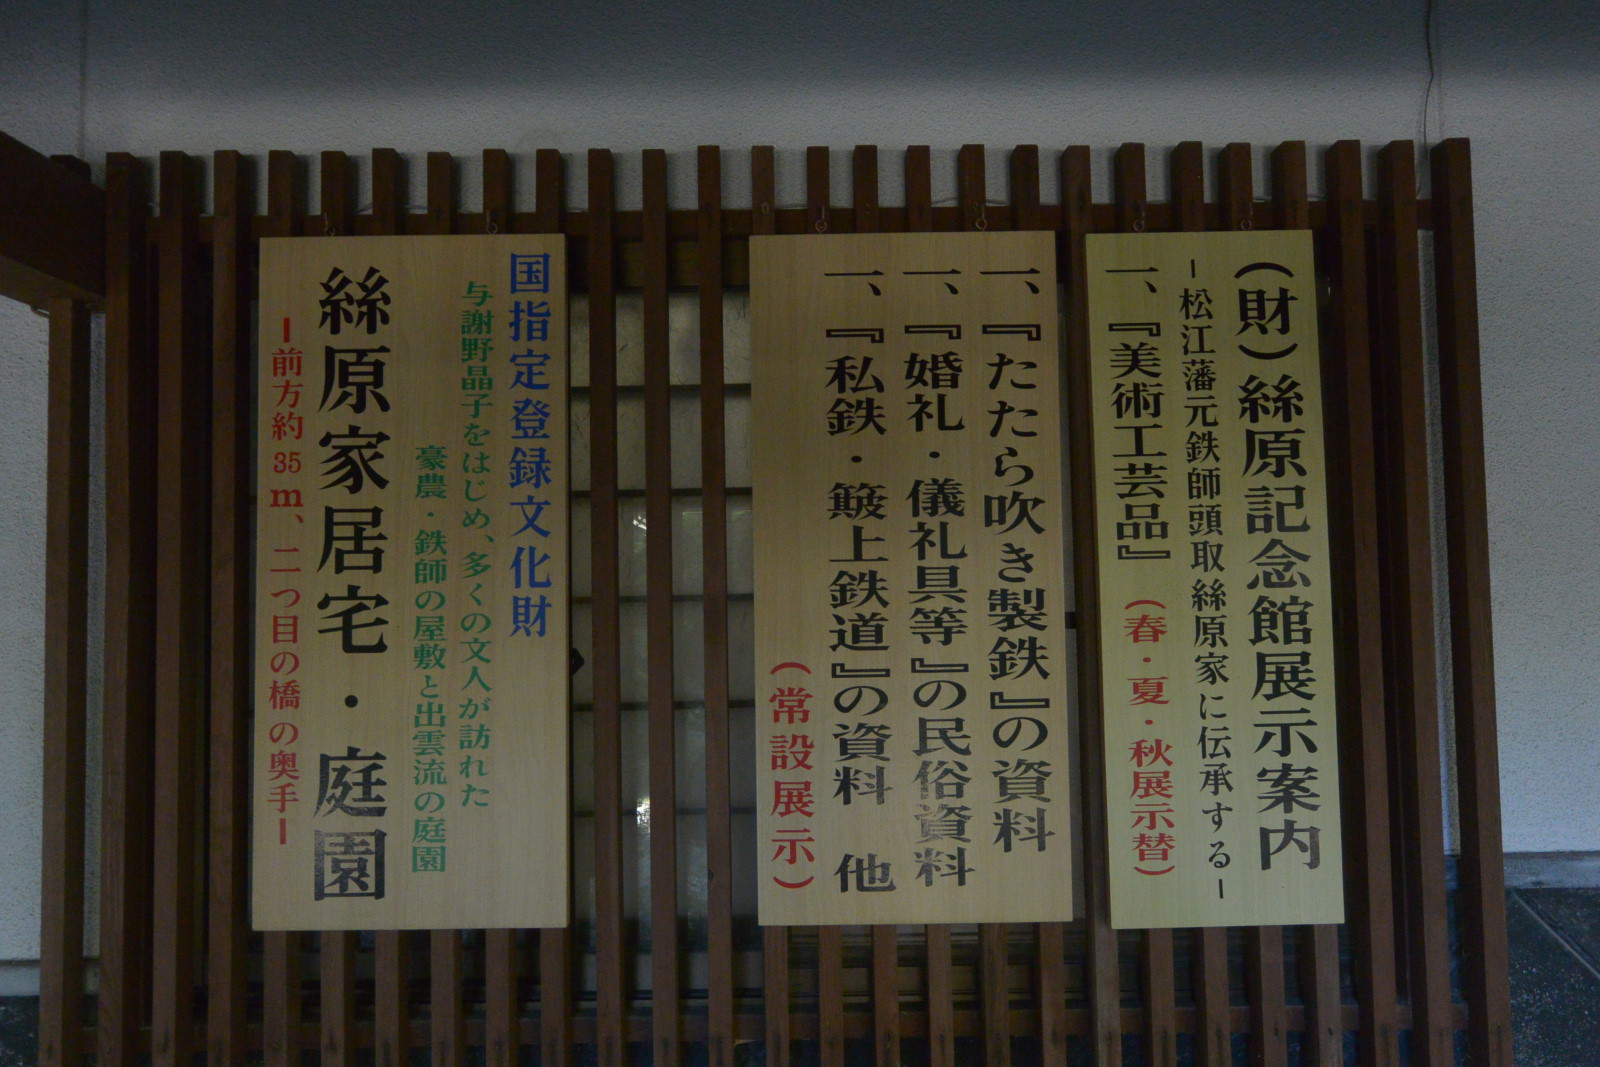 （財）絲原記念館展示案内
－松江藩元鉄師頭取絲原家に伝承する－
一、『美術工芸品』（春・夏・秋展示替）
一、『たたら吹き製鉄』の資料
一、『婚礼・儀礼具等』の民俗資料
一、『私鉄・簸上鉄道』の資料 他
（常設展示）
国指定登録文化財
与謝野晶子をはじめ、多くの文人が訪れた
豪農・鉄師の屋敷と出雲流の庭園
絲原家居宅・庭園
ー前方約35m、二つ目の橋の奥手ー